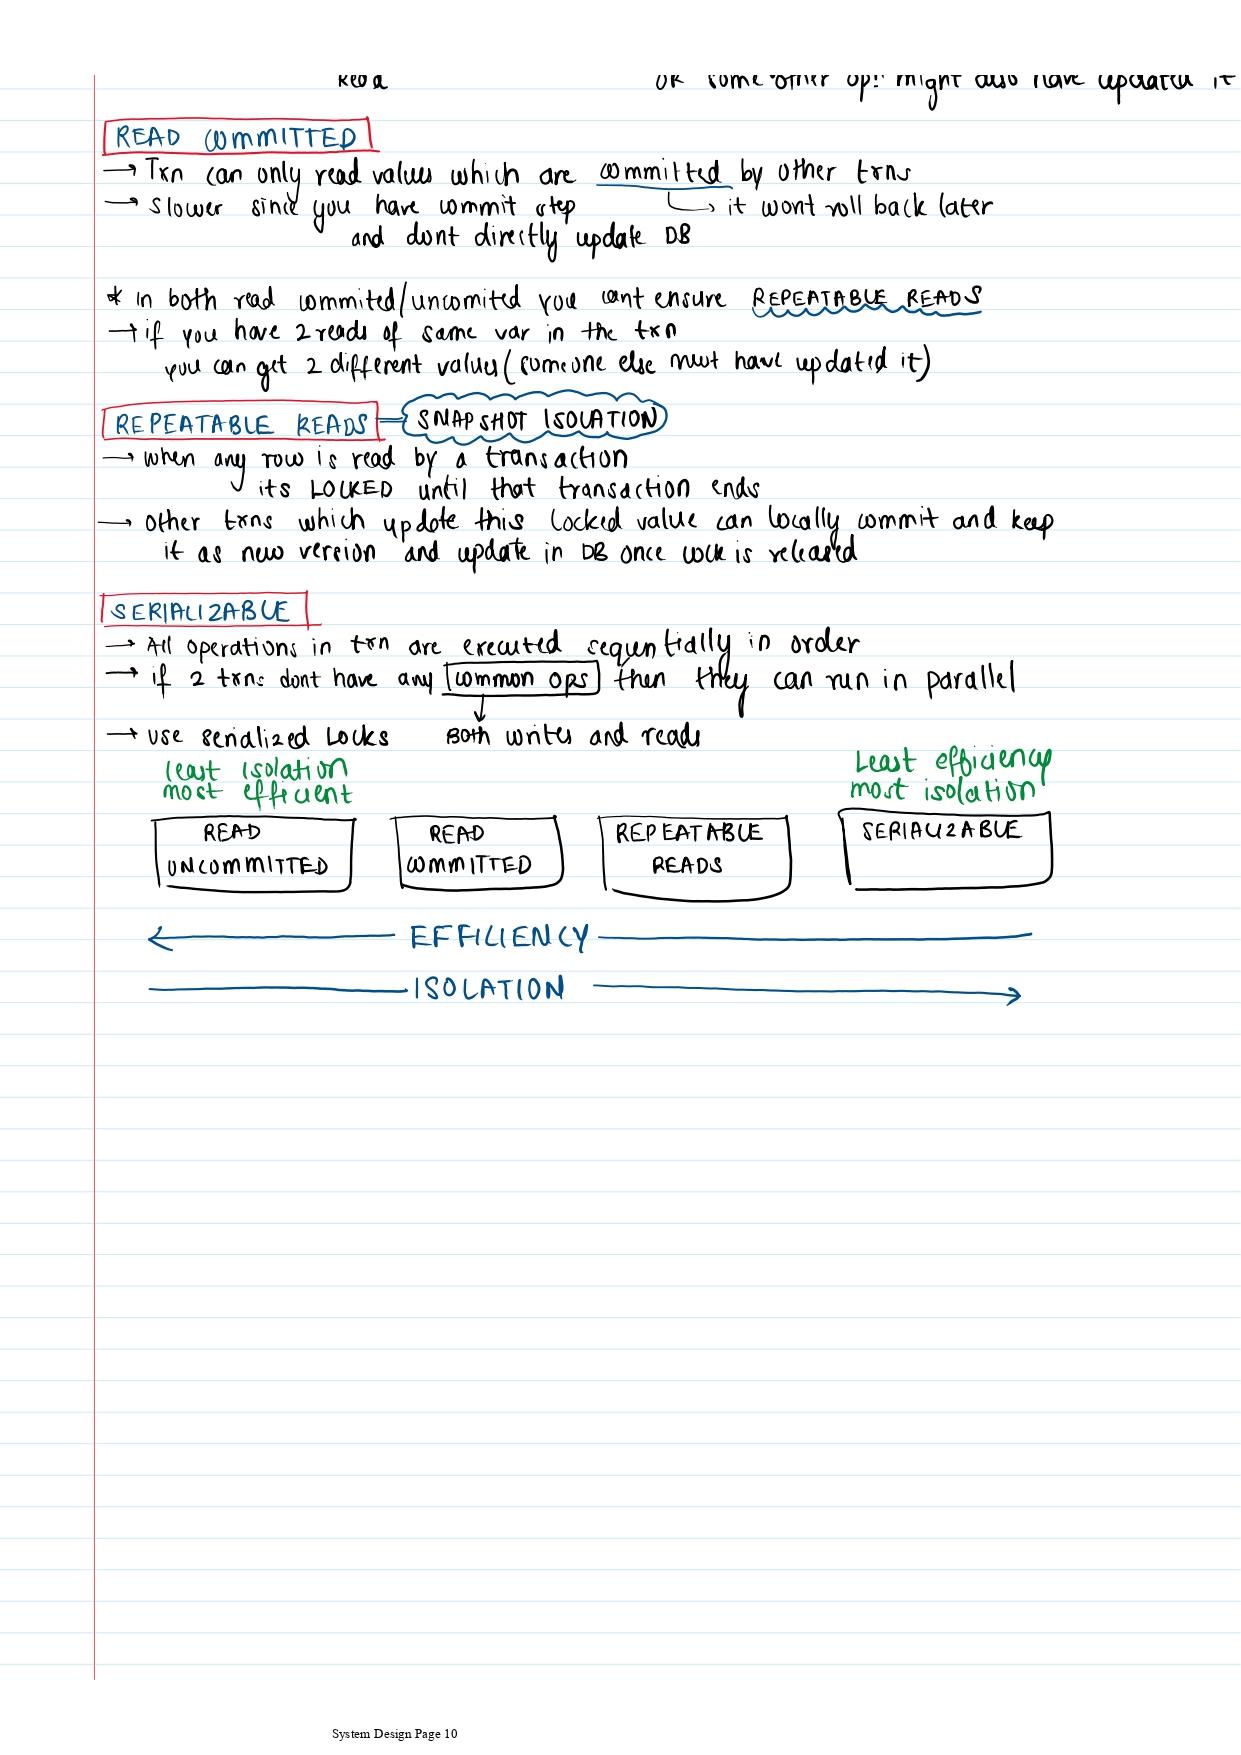 Read or some other op: might also have updated it
READ COMMITTED
→ Txn can only read values which are committed by other txns
→ slower since you have commit step ↳ it wont roll back later
and dont directly update DB
* In both read commited/uncomited you cant ensure REPEATABLE READS
→ if you have 2 reads of same var in the txn
you can get 2 different values (someone else must have updated it)
REPEATABLE READS = SNAPSHOT ISOLATION
→ when any row is read by a transaction
its LOCKED until that transaction ends
→ other txns which update this locked value can locally commit and keep
it as new version and update in DB once lock is released
SERIALIZABLE
→ All operations in txn are executed sequentially in order
→ if 2 txns dont have any common ops then they can run in parallel
→ use serialized Locks Both writes and reads
least isolation
most efficient
Least efficiency
most isolation
READ
UNCOMMITTED
READ
COMMITTED
REPEATABLE
READS
SERIALIZABLE
EFFICIENCY
ISOLATION
System Design Page 10